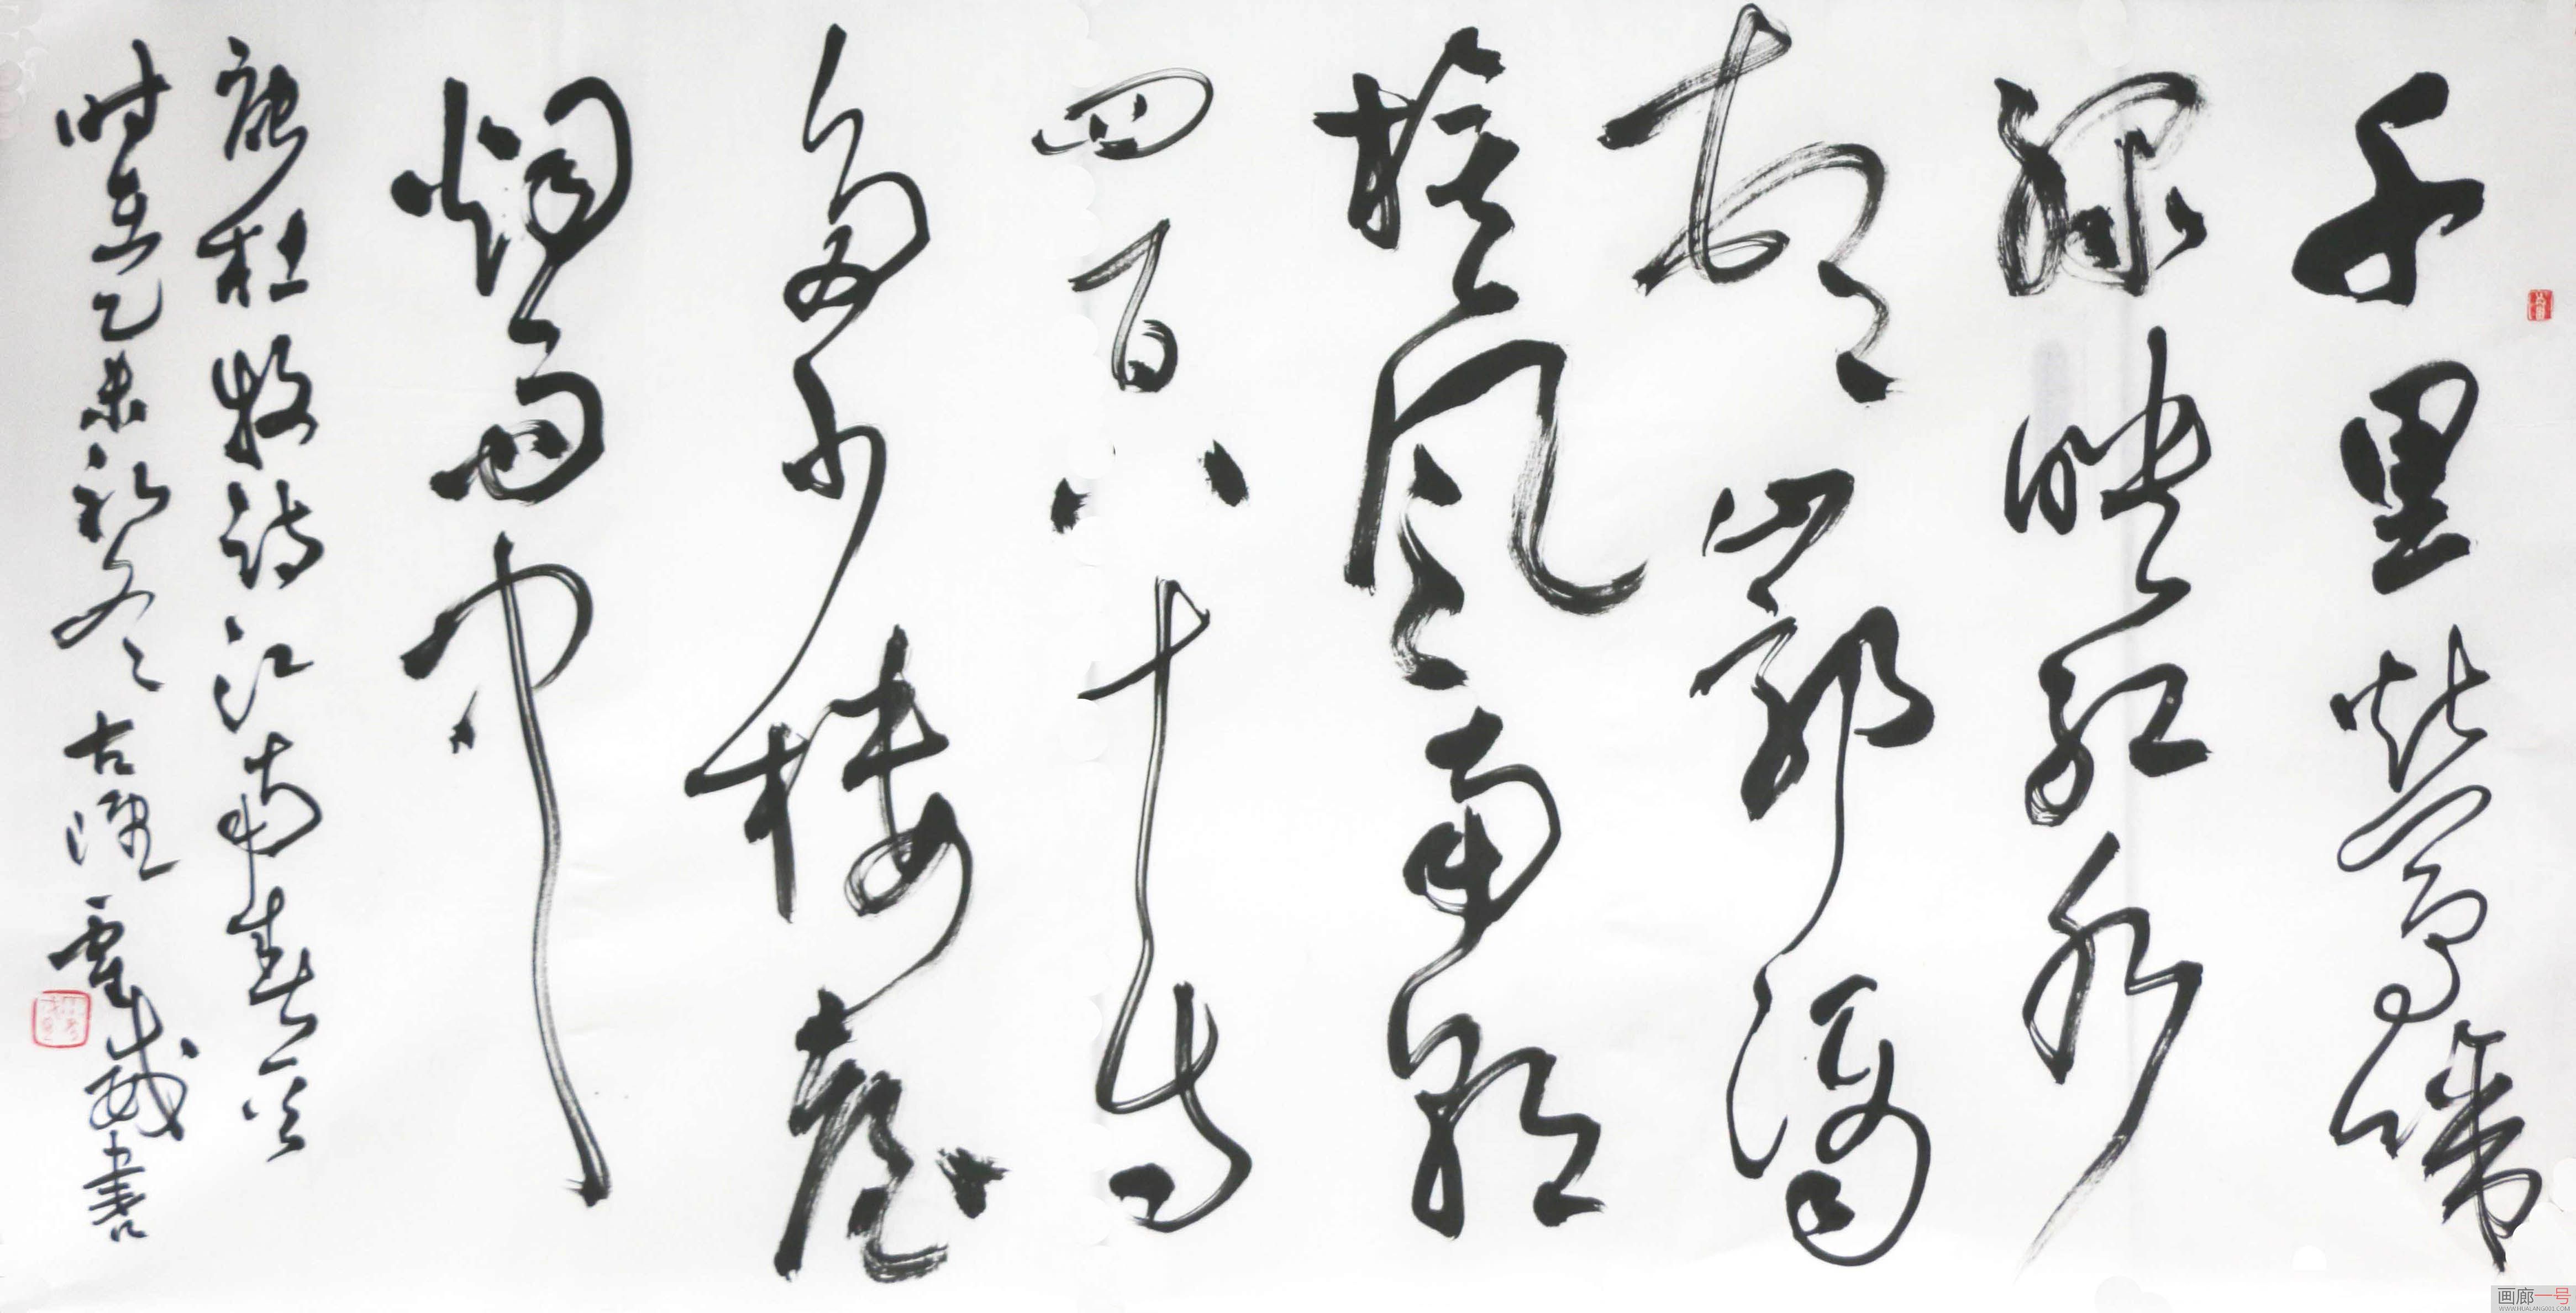 千里莺啼
绿映红水
村山郭酒
旗风南朝
四百八十寺
多少楼台
烟雨中
录杜牧诗江南春一首
时在乙未初冬古潭 威书
画廊一号
WWW.HUALANG001.COM